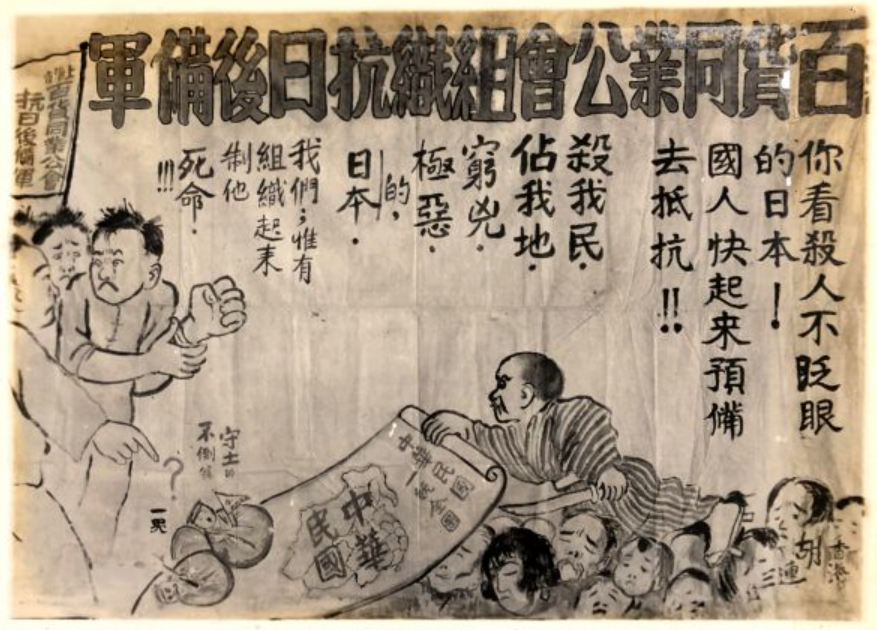 百貨同業公會組織抗日後備軍
你看殺人不眨眼
的日本！
國人快起來預備
去抵抗!!
殺我民．
佔我地．
窮兇．
極惡．
的，
日本．
我們；惟有
組織起来
制他
死命．
!!!
百貨同業公會
抗日後備軍
守土的
不倒
？
中華民國
一統全圖
中華
民國
胡
三連
香港